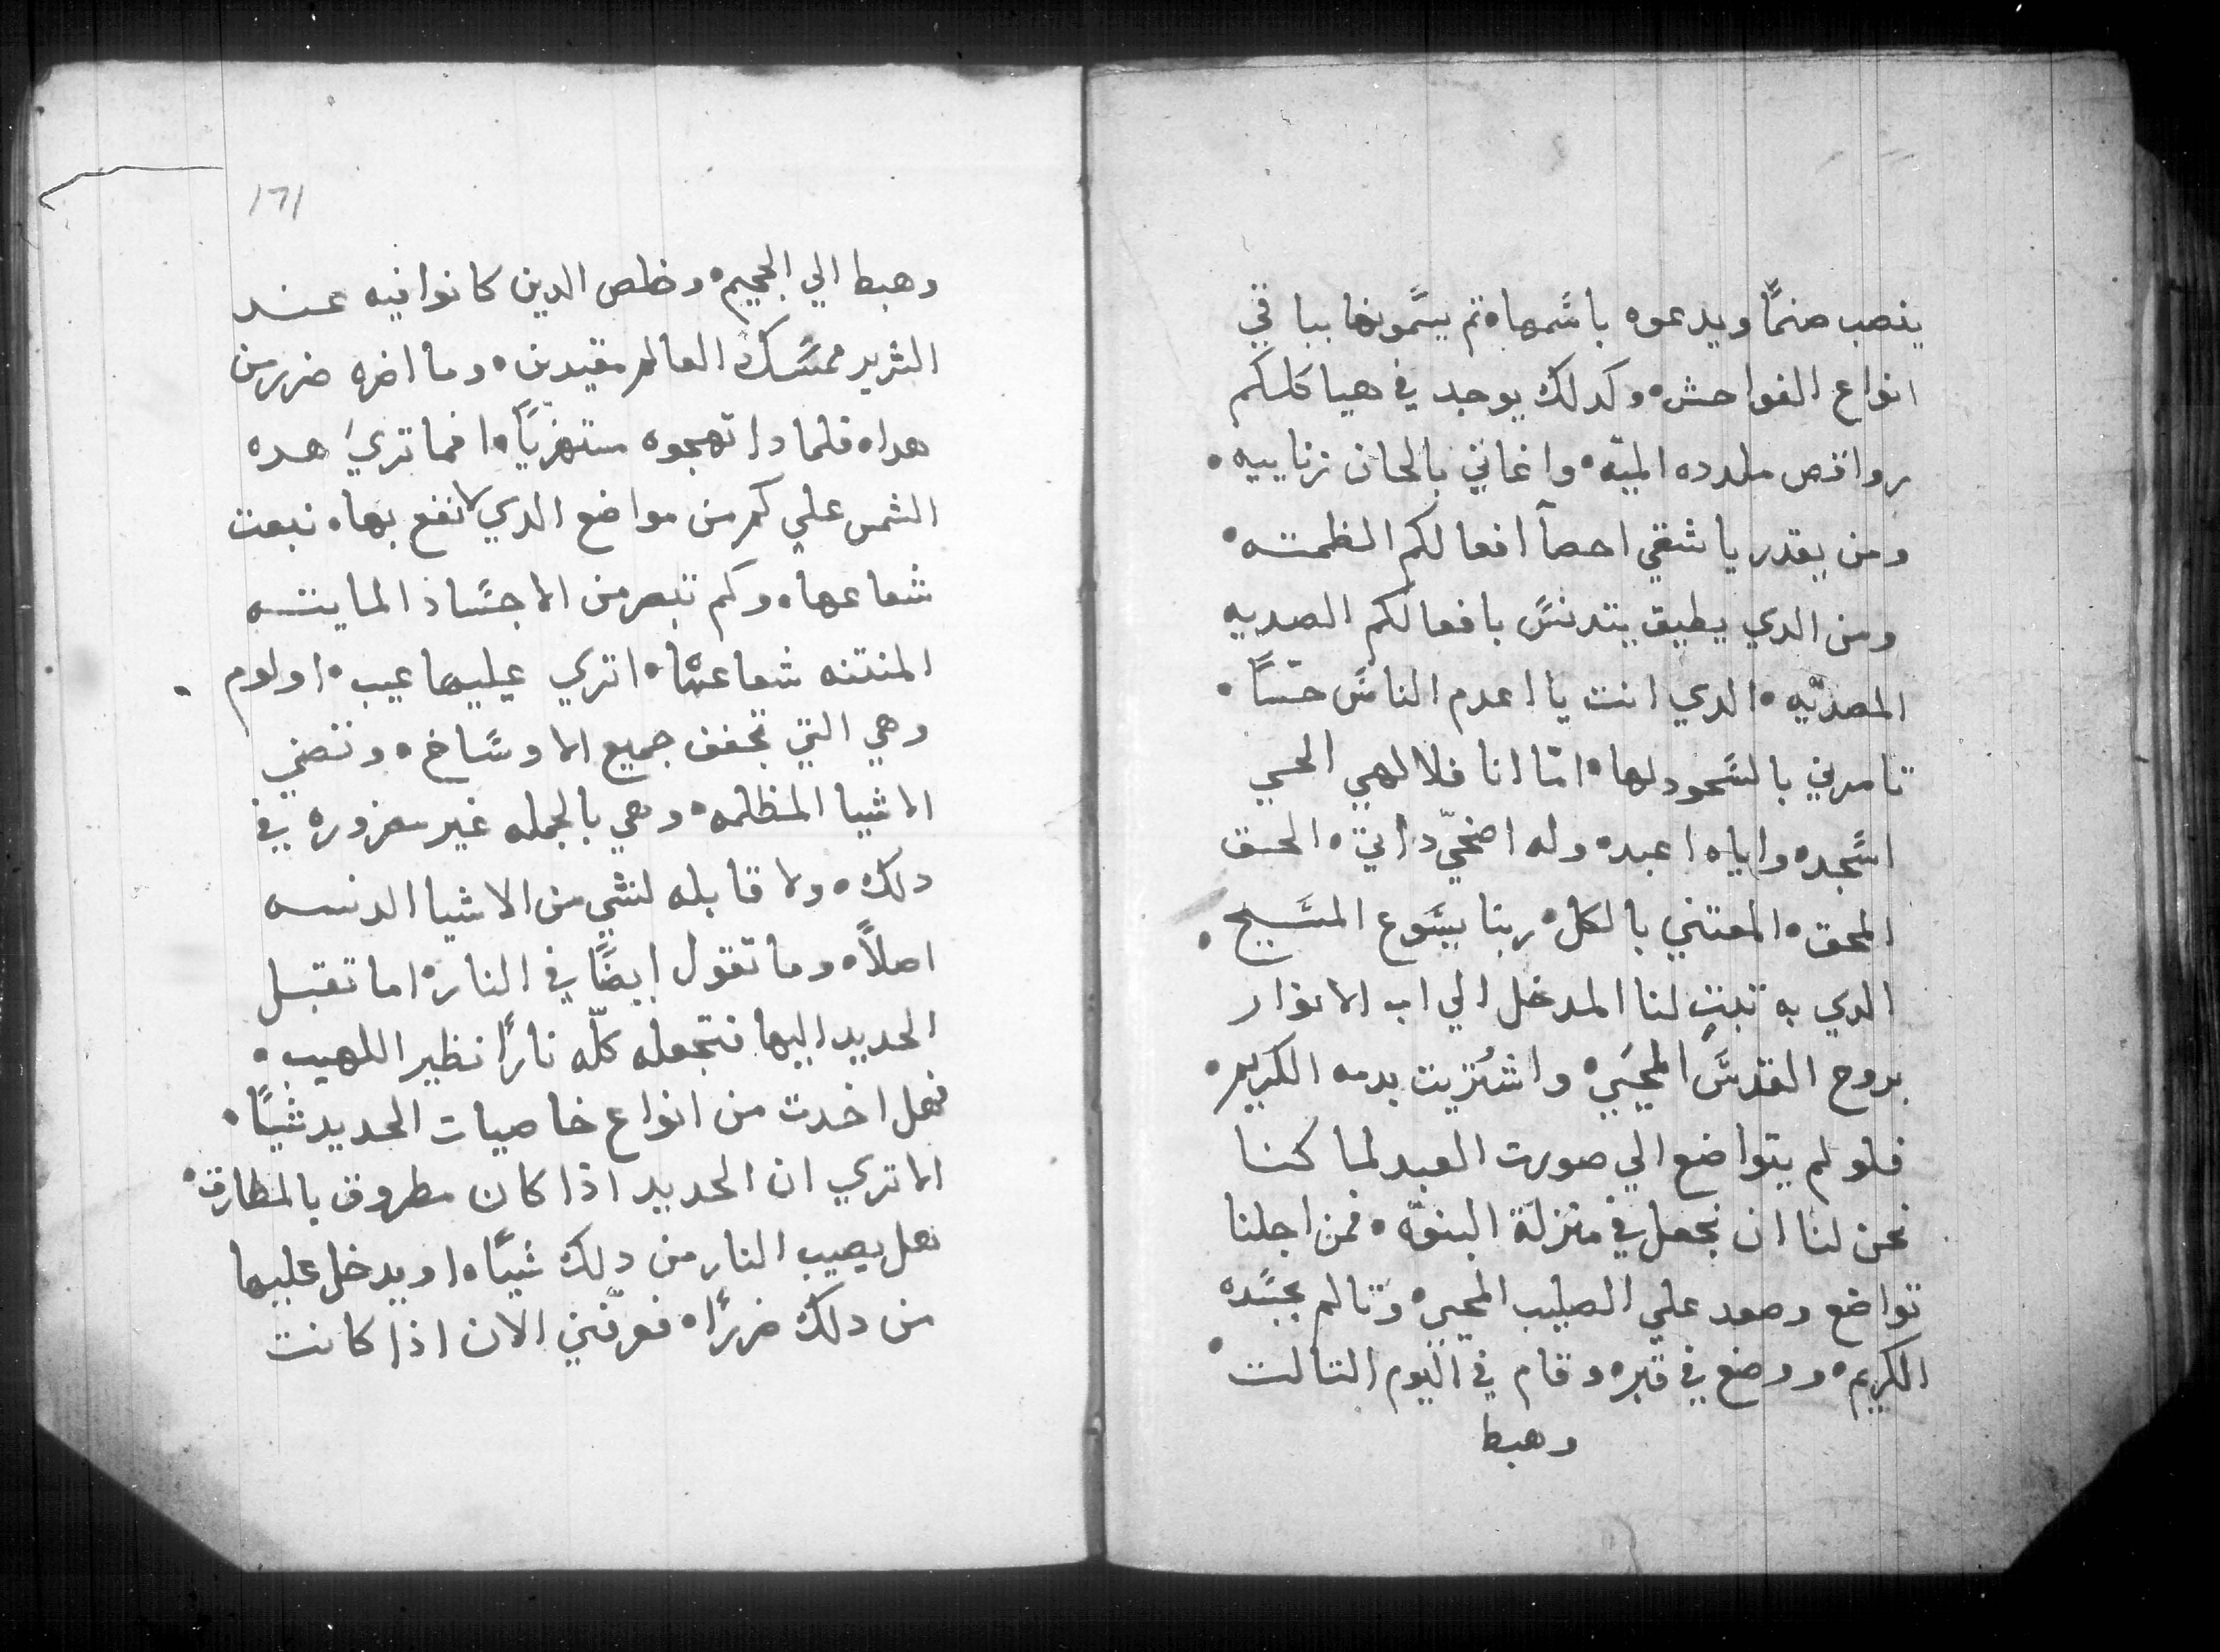 ينصب صنمًا ويدعوه باسمها ثم يسمونها بباقي
انواع الفواحش وكدلك يوجد في هياكلكم
رواقص ملدده الميته واغاني بالحان زناييه
ومن يقدر يا شقي احصآ افعالكم الظمته
ومن الدي يطيق يتدنس بافعالكم الصديه
المصديّه الدي انت يا اعدم الناس حسًا
تامرني بالسجود لها امّا انا فلالهي الحي
اسجد واياه اعبد وله اضحّي داتي الحق
المحق المعتني بالكل ربنا يسوع المسيح
الدي به تبت لنا المدخل الي اب الانوار
بروح القدس المحيي واشتريت بدمه الكريم
فلو لم يتواضع الي صورت العبد لما كنا
نحن لنا ان نجعل في منزلة البنوّه فمن اجلنا
تواضع وصعد علي الصليب المحيي وتالم بجسده
الكريم ووضع في قبره وقام في اليوم التالت
وهبط
171
وهبط الي الجحيم وخلص الدين كانوا فيه عند
الشرير ممسك العالم مقيدين وما اضره ضرر من
هدا فلمادا تهجوه مستهزيًا افما تري هده
الشمس علي كم من مواضع الدي لا نفع بها تبعت
شعاعها وكم تبصر من الاجساد المايته
المنتنه شعاعها اتري عليها عيب او لوم
وهي التي تجفف جميع الاوساخ وتضي
الاشيا المظلمه وهي بالجمله غير معزوره في
دلك ولا قابله لشي من الاشيا الدنسه
اصلاً وما تقول ايضًا في النار اما تقبل
الحديد اليها فتجعله كلّه نارًا نظير اللهيب
فهل اخدت من انواع خاصيات الحديد شيًا
الا تري ان الحديد اذا كان مطروق بالمطارق
هل يصيب النار من دلك شيًا او يدخل عليها
من دلك ضررًا فعرّفني الان اذا كانت